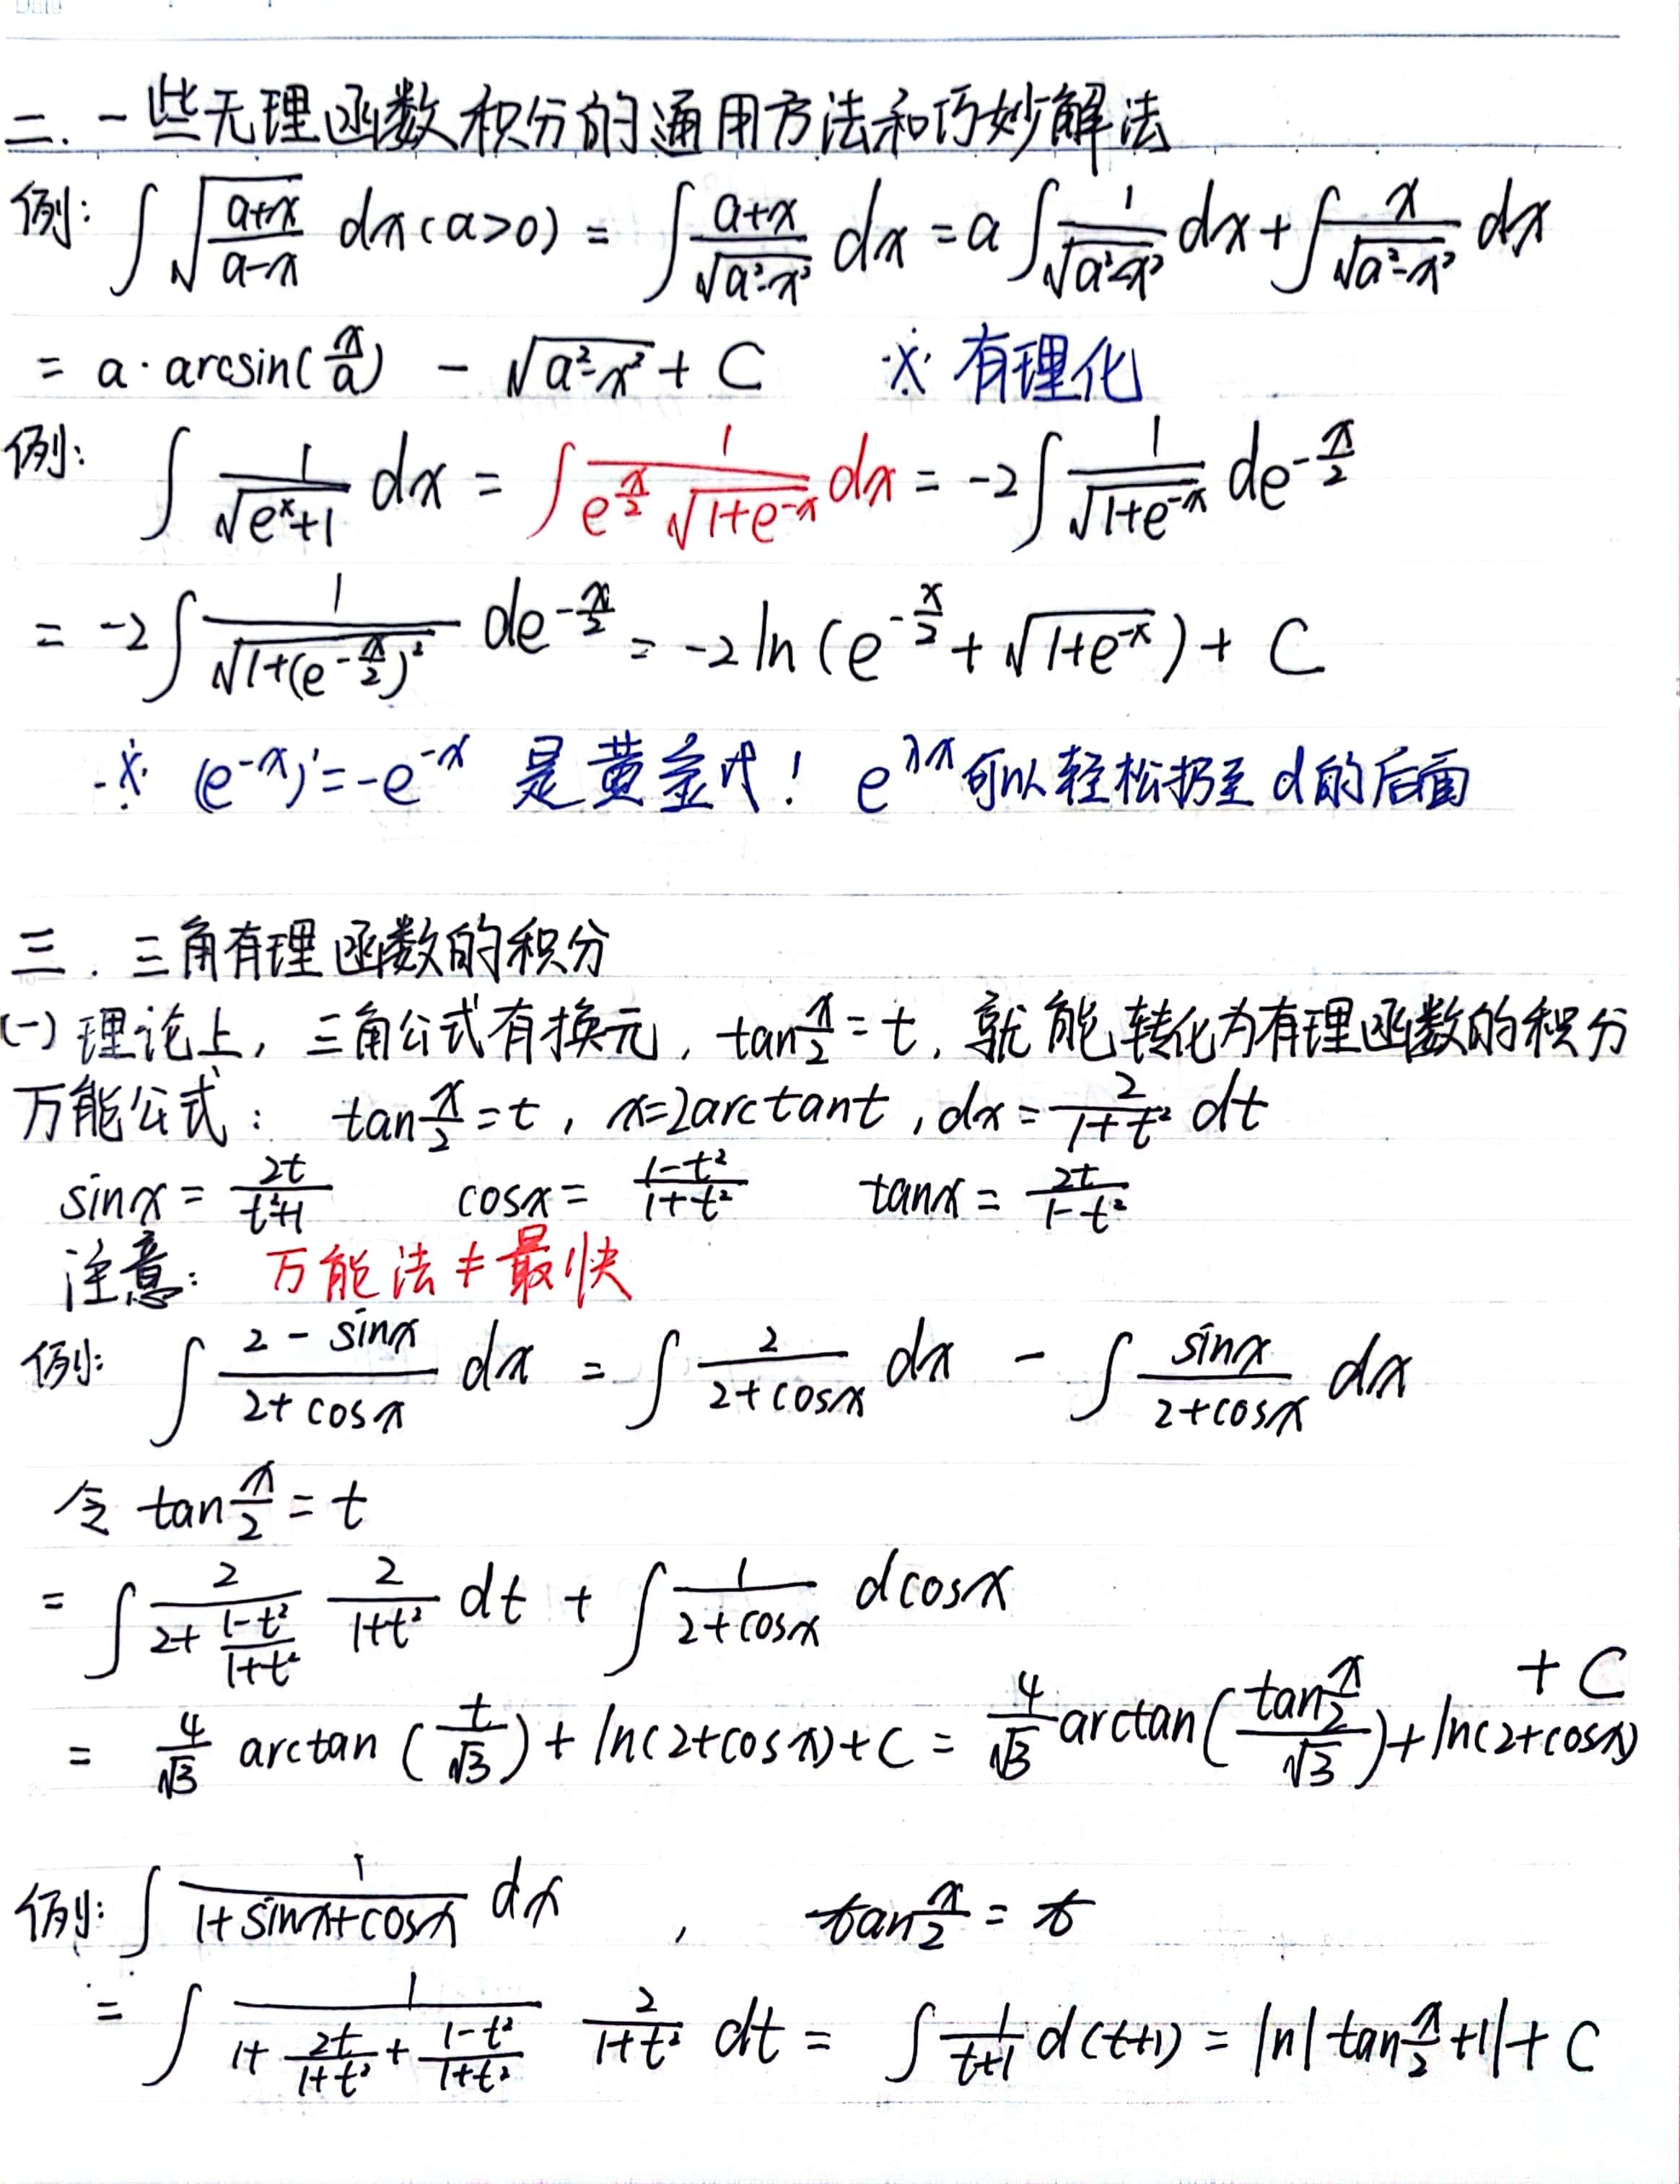 二. 一些无理函数积分的通用方法和巧妙解法
例: ∫ √((a+x)/(a-x)) dx (a>0) = ∫ (a+x)/√(a²-x²) dx = a ∫ 1/√(a²-x²) dx + ∫ x/√(a²-x²) dx
= a · arcsin(x/a) - √(a²-x²) + C ※ 有理化
例: ∫ 1/√(e^x+1) dx = ∫ 1/(e^(x/2) √(1+e^(-x))) dx = -2 ∫ 1/√(1+e^(-x)) de^(-x/2)
= -2 ∫ 1/√(1+(e^(-x/2))²) de^(-x/2) = -2 ln (e^(-x/2) + √(1+e^(-x))) + C
※ (e^(-x))' = -e^(-x) 是黄金式! e^(λx) 可以轻松扔至 d 的后面
三. 三角有理函数的积分
(一) 理论上, 三角公式有换元, tan x/2 = t, 就能转化为有理函数的积分
万能公式: tan x/2 = t, x = 2arctant, dx = 2/(1+t²) dt
sinx = 2t/(t²+1) cosx = (1-t²)/(1+t²) tanx = 2t/(1-t²)
注意: 万能法 ≠ 最快
例: ∫ (2-sinx)/(2+cosx) dx = ∫ 2/(2+cosx) dx - ∫ sinx/(2+cosx) dx
令 tan x/2 = t
= ∫ 2/(2+(1-t²)/(1+t²)) 2/(1+t²) dt + ∫ 1/(2+cosx) dcosx
= 4/√3 arctan (t/√3) + ln(2+cosx) + C = 4/√3 arctan((tan x/2)/√3) + ln(2+cosx) + C
例: ∫ 1/(1+sinx+cosx) dx , tan x/2 = t
= ∫ 1/(1+2t/(1+t²)+(1-t²)/(1+t²)) 2/(1+t²) dt = ∫ 1/(t+1) d(t+1) = ln|tan x/2 +1| + C